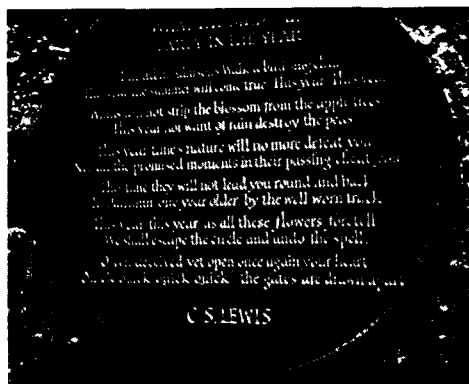 EARLY IN THE YEAR
Walk a bird sing clear
the summer will come true This year This year
not strip the blossom from the apple trees
This year nor want of rain destroy the peas
This year time's nature will no more defeat you
the promised moments in their passing cheat you
This time they will not lead you round and back
To Autumn one year older by the well worn track
This year this year as all these flowers foretell
We shall escape the circle and undo the spell
deceived yet open once again your heart
Quick quick quick quick the gates are drawn apart
C S LEWIS